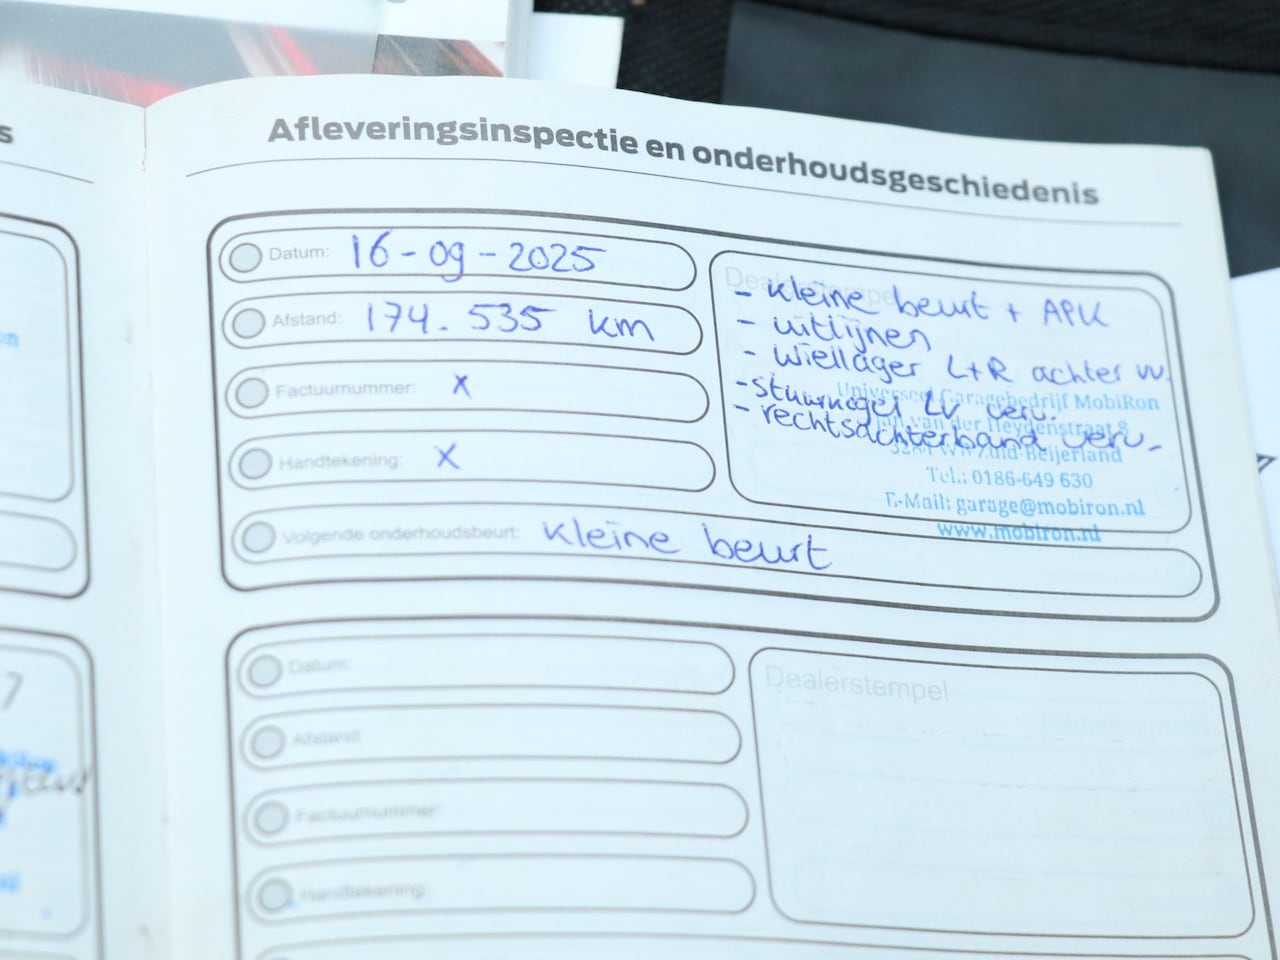 Afleveringsinspectie en onderhoudsgeschiedenis
Datum: 16-09-2025
Afstand: 174.535 km
Factuurnummer: x
Handtekening: x
Volgende onderhoudsbeurt: kleine beurt
Dealerstempel
- kleine beurt + APK
- uitlijnen
- wiellager L+R achter vv.
- stuurkogel LV verv.
- rechtsachterband verv.
Universeel Garagebedrijf MobiRon
Jan van der Heydenstraat 8
Zuid-Beijerland
Tel.: 0186-649 630
E-Mail: garage@mobiron.nl
www.mobiron.nl
Datum:
Afstand:
Factuurnummer:
Handtekening:
Dealerstempel